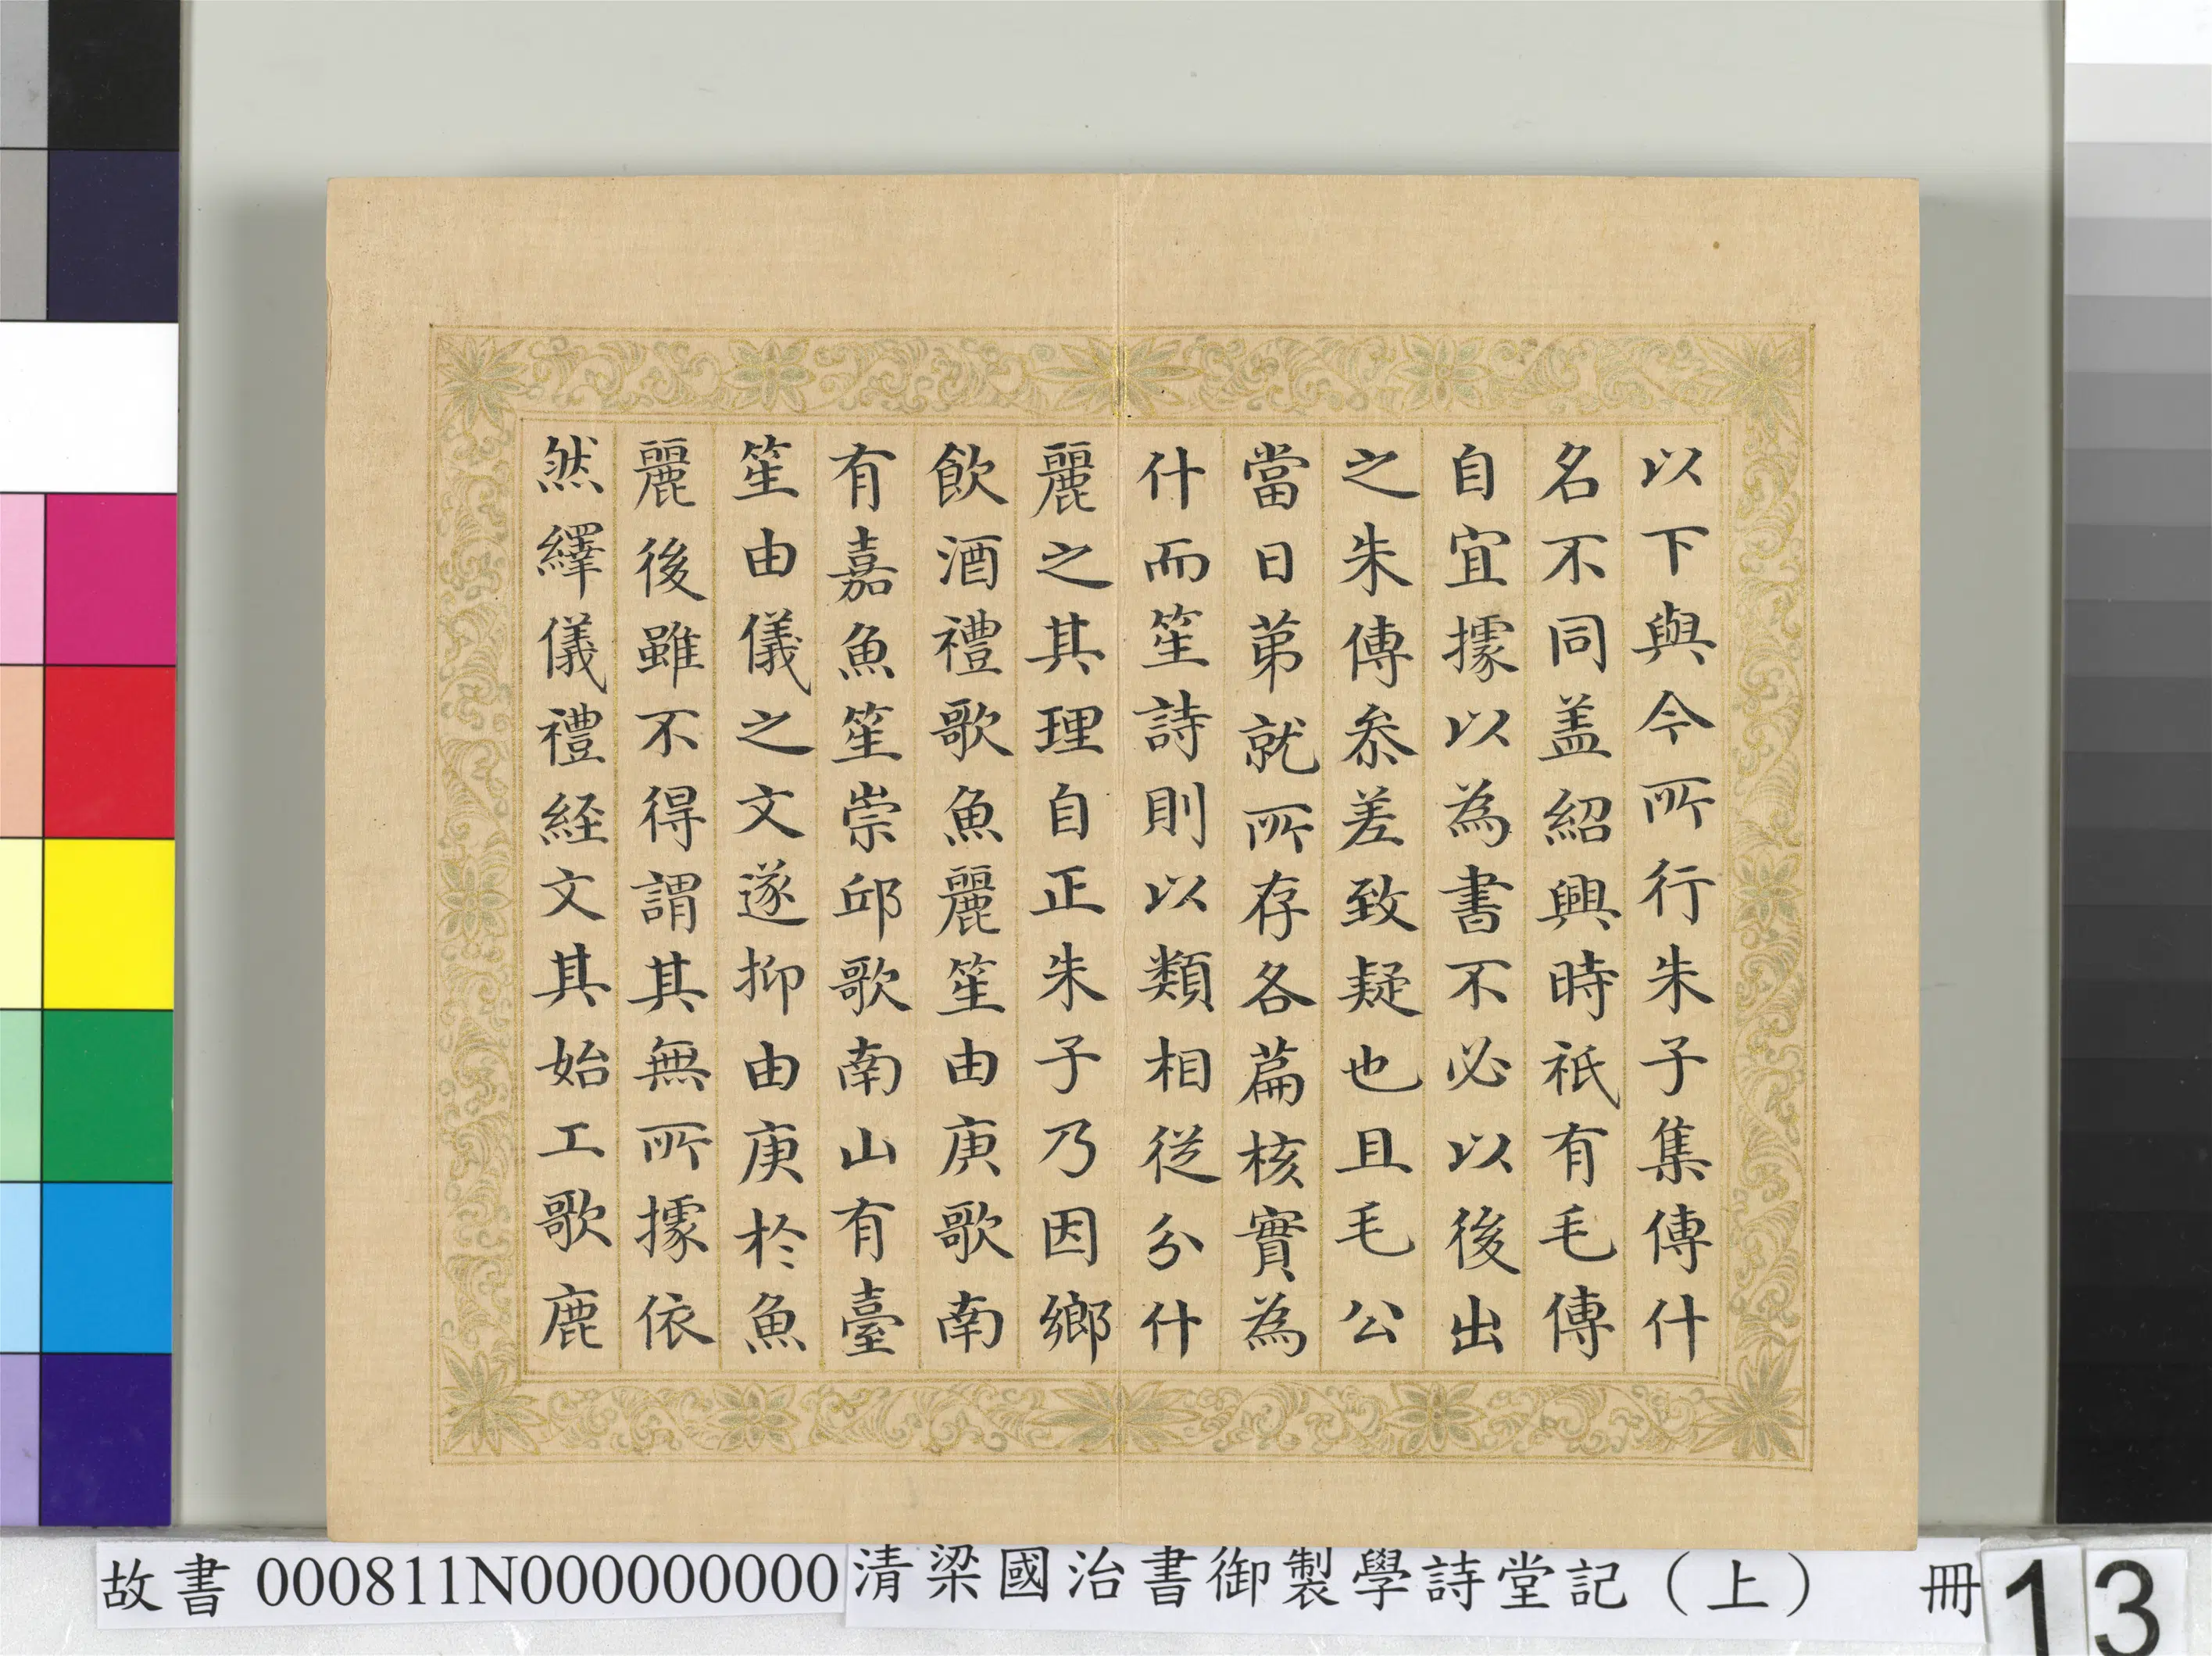 以下與今所行朱子集傳什
名不同盖紹興時祇有毛傳
自宜據以為書不必以後出
之朱傳叅差致疑也且毛公
當日苐就所存各篇核實為
什而笙詩則以類相從分什
麗之其理自正朱子乃因鄉
飲酒禮歌魚麗笙由庚歌南
有嘉魚笙崇邱歌南山有臺
笙由儀之文遂抑由庚於魚
麗後雖不得謂其無所據依
然繹儀禮経文其始工歌鹿
故書 000811N000000000 清梁國治書御製學詩堂記（上） 冊 13